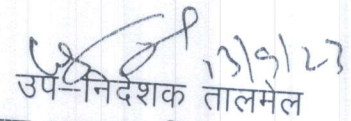 13/9/23
उप-निदेशक तालमेल